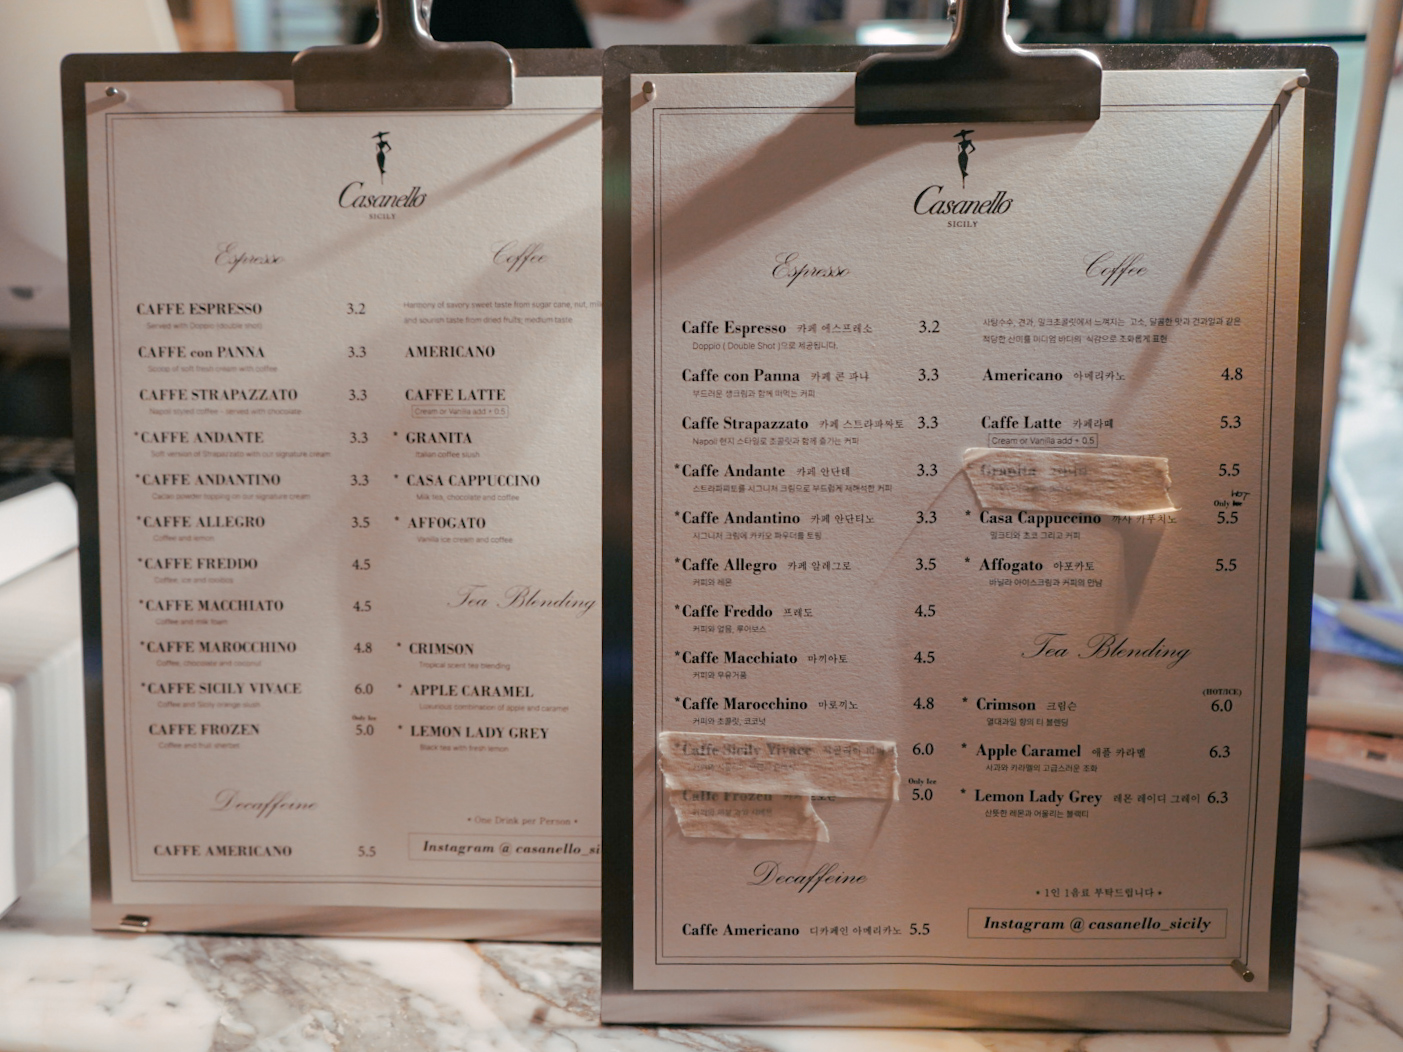 Casanello
SICILY
Espresso
CAFFE ESPRESSO 3.2
Served with Doppio (double shot)
CAFFE con PANNA 3.3
Scoop of soft fresh cream with coffee
CAFFE STRAPAZZATO 3.3
Napoli styled coffee - served with chocolate
*CAFFE ANDANTE 3.3
Soft version of Strapazzato with our signature cream
*CAFFE ANDANTINO 3.3
Cacao powder topping on our signature cream
*CAFFE ALLEGRO 3.5
Coffee and lemon
*CAFFE FREDDO 4.5
Coffee, ice and rooibos
*CAFFE MACCHIATO 4.5
Coffee and milk foam
*CAFFE MAROCCHINO 4.8
Coffee, chocolate and coconut
*CAFFE SICILY VIVACE 6.0
Coffee and Sicily orange slush
Only Ice
CAFFE FROZEN 5.0
Coffee and fruit sherbet
Decaffeine
CAFFE AMERICANO 5.5
Coffee
Harmony of savory sweet taste from sugar cane, nut, milk
and sourish taste from dried fruits; medium taste
AMERICANO
CAFFE LATTE
Cream or Vanilla add + 0.5
* GRANITA
Italian coffee slush
* CASA CAPPUCCINO
Milk tea, chocolate and coffee
* AFFOGATO
Vanilla ice cream and coffee
Tea Blending
* CRIMSON
Tropical scent tea blending
* APPLE CARAMEL
Luxurious combination of apple and caramel
* LEMON LADY GREY
Black tea with fresh lemon
* One Drink per Person *
Instagram @ casanello_si
Casanello
SICILY
Espresso
Caffe Espresso 카페 에스프레소 3.2
Doppio ( Double Shot )으로 제공됩니다.
Caffe con Panna 카페 콘 파나 3.3
부드러운 생크림과 함께 떠먹는 커피
Caffe Strapazzato 카페 스트라파짜토 3.3
Napoli 현지 스타일로 초콜릿과 함께 즐기는 커피
*Caffe Andante 카페 안단테 3.3
스트라파짜토를 시그니처 크림으로 부드럽게 재해석한 커피
*Caffe Andantino 카페 안단티노 3.3
시그니처 크림에 카카오 파우더를 토핑
*Caffe Allegro 카페 알레그로 3.5
커피와 레몬
*Caffe Freddo 프레도 4.5
커피와 얼음, 루이보스
*Caffe Macchiato 마끼아토 4.5
커피와 우유거품
*Caffe Marocchino 마로끼노 4.8
커피와 초콜릿, 코코넛
*Caffe Sicily Vivace 6.0
Only Ice
Caffe Frozen 5.0
Decaffeine
Caffe Americano 디카페인 아메리카노 5.5
Coffee
사탕수수, 견과, 밀크초콜릿에서 느껴지는 고소, 달콤한 맛과 건과일과 같은
적당한 산미를 미디엄 바디의 식감으로 조화롭게 표현
Americano 아메리카노 4.8
Caffe Latte 카페라떼 5.3
Cream or Vanilla add + 0.5
Granita 5.5
Only HOT
* Casa Cappuccino 까사 카푸치노 5.5
밀크티와 초코 그리고 커피
* Affogato 아포카토 5.5
바닐라 아이스크림과 커피의 만남
Tea Blending
(HOT/ICE)
* Crimson 크림슨 6.0
열대과일 향의 티 블렌딩
* Apple Caramel 애플 카라멜 6.3
사과와 카라멜의 고급스러운 조화
* Lemon Lady Grey 레몬 레이디 그레이 6.3
산뜻한 레몬과 어울리는 블랙티
* 1인 1음료 부탁드립니다 *
Instagram @ casanello_sicily